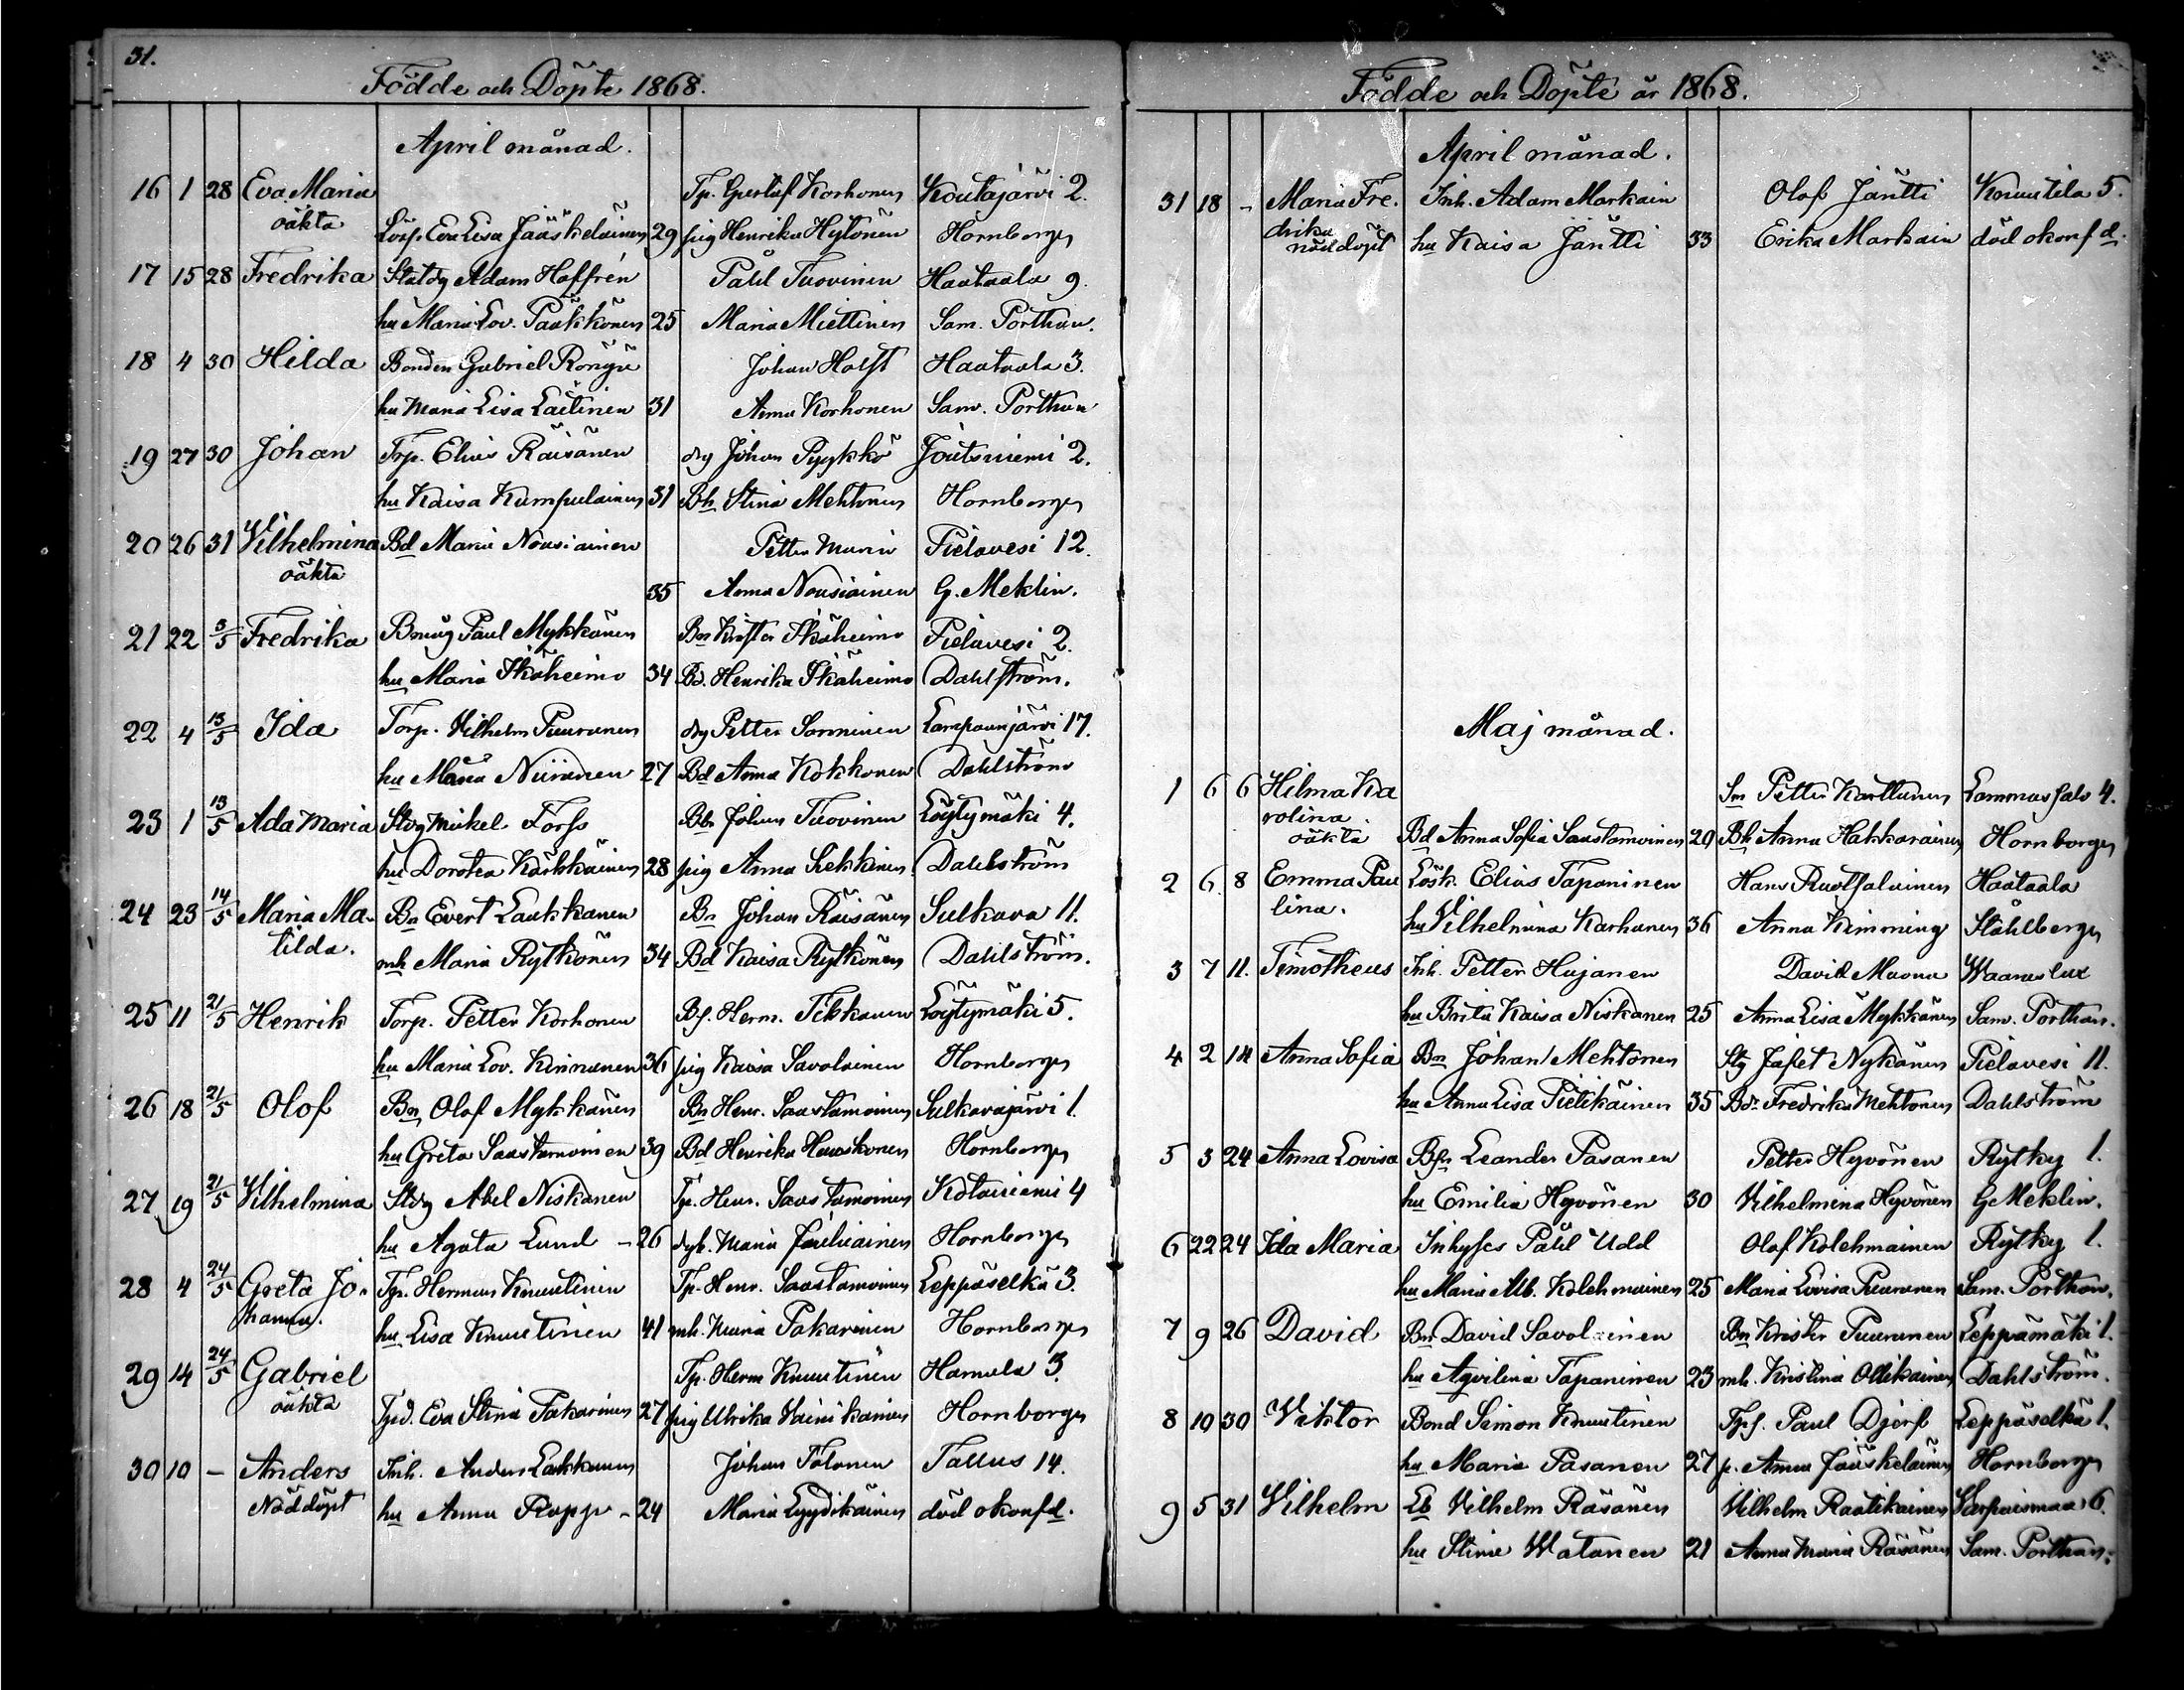 31.
Födde och Döpte 1868.
April månad.
16 1 28 Eva Maria Tp. Gustaf Korhonen Koutajärvi 2.
oäkta Lösp. Eva Lisa Jääskeläinen 29 pig Henrika Hytönen Hornborg
17 15 28 Fredrika Statdg Adam Hoffrén Påhl Tuovinen Haatala 9.
hu Maria Lov. Pääkkönen 25 Maria Miettinen Sam. Porthan.
18 4 30 Hilda Bonden Gabriel Röngä Johan Holst Haatala 3.
hu Maria Lisa Laitinen 31 Anna Korhonen Sam. Porthan
19 27 30 Johan Trp. Elias Räisänen dg Johan Pyykkö Joutsniemi 2.
hu Kaisa Kumpulainen 31 Bh. Stina Mehtonen Hornborg
20 26 31 Vilhelmina Bd Maria Nousiainen Petter Pielavesi 12.
oäkta 35 Anna Nousiainen G. Meklin.
21 22 3/5 Fredrika Bmåg Paul Mykkänen Bn Krister Ikäheimo Pielavesi 2.
hu Maria Ikäheimo 34 Bd. Henrika Ikäheimo Dahlström.
22 4 13/5 Ida Torp. Vilhelm Puurunen dg Petter Sorminen Lampaanjärvi 17.
hu Maria Niiranen 27 Bd Anna Kokkonen Dahlström
23 1 13/5 Ada Maria Stdg Mikel Forss Bb Johan Tuovinen Löytymäki 4.
hu Dorotea Kärkkäinen 28 pig Anna Dahlström
24 23 14/5 Maria Ma- Bn Evert Laukkanen Bn Johan Räisänen Sulkava 11.
tilda. mh Maria Rytkönen 34 Bd Kaisa Rytkönen Dahlström.
25 11 21/5 Henrik Torp. Petter Korhonen Bs. Herm. Tikkanen Löytymäki 5.
hu Maria Lov. Kinnunen 36 pig Kaisa Savolainen Hornborg
26 18 21/5 Olof Bn Olof Mykkänen Bn Henr. Saastamoinen Sulkavajärvi 1.
hu Greta Saastamoinen 39 Bd Henrika Hornborg
27 19 21/5 Vilhelmina Stdg Abel Niskanen Tp. Henr. Saastamoinen Kotaniemi 4
hu Agata Lund - 26 dgh. Maria Hornborg
28 4 24/5 Greta Jo- Tp. Herman Knuutinen Tp. Henr. Saastamoinen Leppäselkä 3.
hanna. hu Lisa Knuutinen 41 mh. Maria Pakarinen Hornborg
29 14 24/5 Gabriel Tp. Herm Knuutinen Hamula 3.
oäkta Tpd. Eva Stina Pakarinen 27 pig Ulrika Vainikainen Hornborg
30 10 - Anders Inh. Anders Laukkanen Johan Tolonen Tallus 14.
Nöddöpt hu Anna Ropp - 24 Maria Lyydikäinen död okonfd.
Födde och Döpte år 1868.
April månad.
31 18 - Maria Fre- Inh. Adam Markain Olof Jäntti Knuutila 5.
drika
nöddöpt hu Kaisa Jäntti 33 Erika Markain död okonfd.
Maj månad.
1 6 6 Hilma Ka Sn Petter Karttunen Lammassalo 4.
rolina
oäkta Bd Anna Sofia Saastamoinen 20 Bh Anna Hakkarainen Hornborg
2 6 8 Emma Pau Lösk. Elias Tapaninen Hans Ruotsalainen Haatala
lina. hu Vilhelmina Karhunen 36 Anna Kimming Ståhlberg
3 7 11. Timotheus Inh. Petter Hujanen David Waaraslax
hu Brita Kaisa Niskanen 25 Anna Lisa Mykkänen Sam. Porthan.
4 2 14 Anna Sofia Bn Johan Mehtonen Stg Jafet Nykänen Pielavesi 11.
hu Anna Lisa Pietikäinen 35 Bdr Fredrika Mehtonen Dahlström
5 3 24 Anna Lovisa Bsn Leander Pasanen Petter Hyvönen Rytky 1.
hu Emilia Hyvönen 30 Vilhelmina Hyvönen G Meklin.
6 22 24 Ida Maria Inhyses Påhl Udd Olof Kolehmainen Rytky 1.
hu Maria Alb. Kolehmainen 25 Maria Lovisa Puurunen Sam. Porthan.
7 9 26 David Bn David Savolainen Bn Krister Puurunen Leppämäki 1.
hu Aqvilina Tapaninen 23 mh. Kristina Ollikainen Dahlström.
8 10 30 Viktor Bond Simon Knuutinen Tps. Paul Djerf Leppäselkä 1.
hu Maria Pasanen 27 p. Anna Jääskeläinen Hornborg
9 5 31 Vilhelm Lb Vilhelm Räsänen Vilhelm Raatikainen Varpaismaa 6.
hu Stina Watanen 21 Anna Maria Räsänen Sam. Porthan.